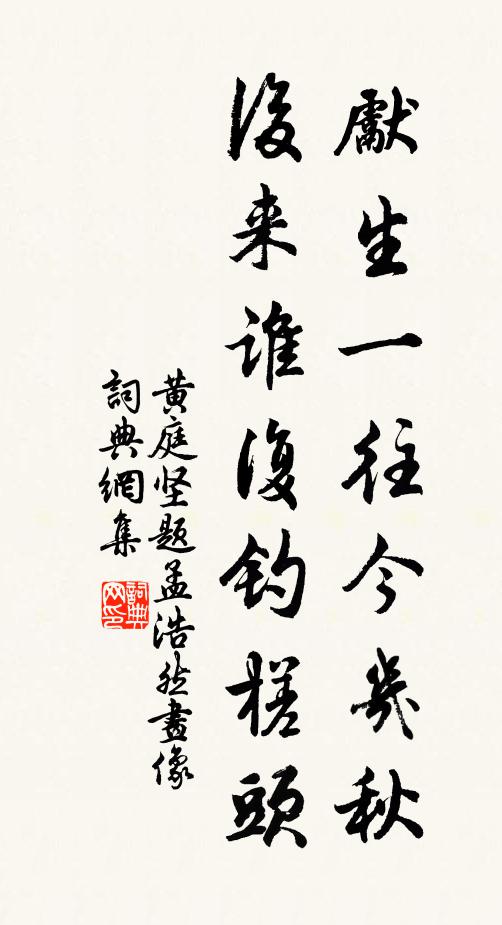 獻生一往今幾秋
後来誰復釣槎頭
黄庭坚题孟浩然畫像
詞典網集
詞典
网印